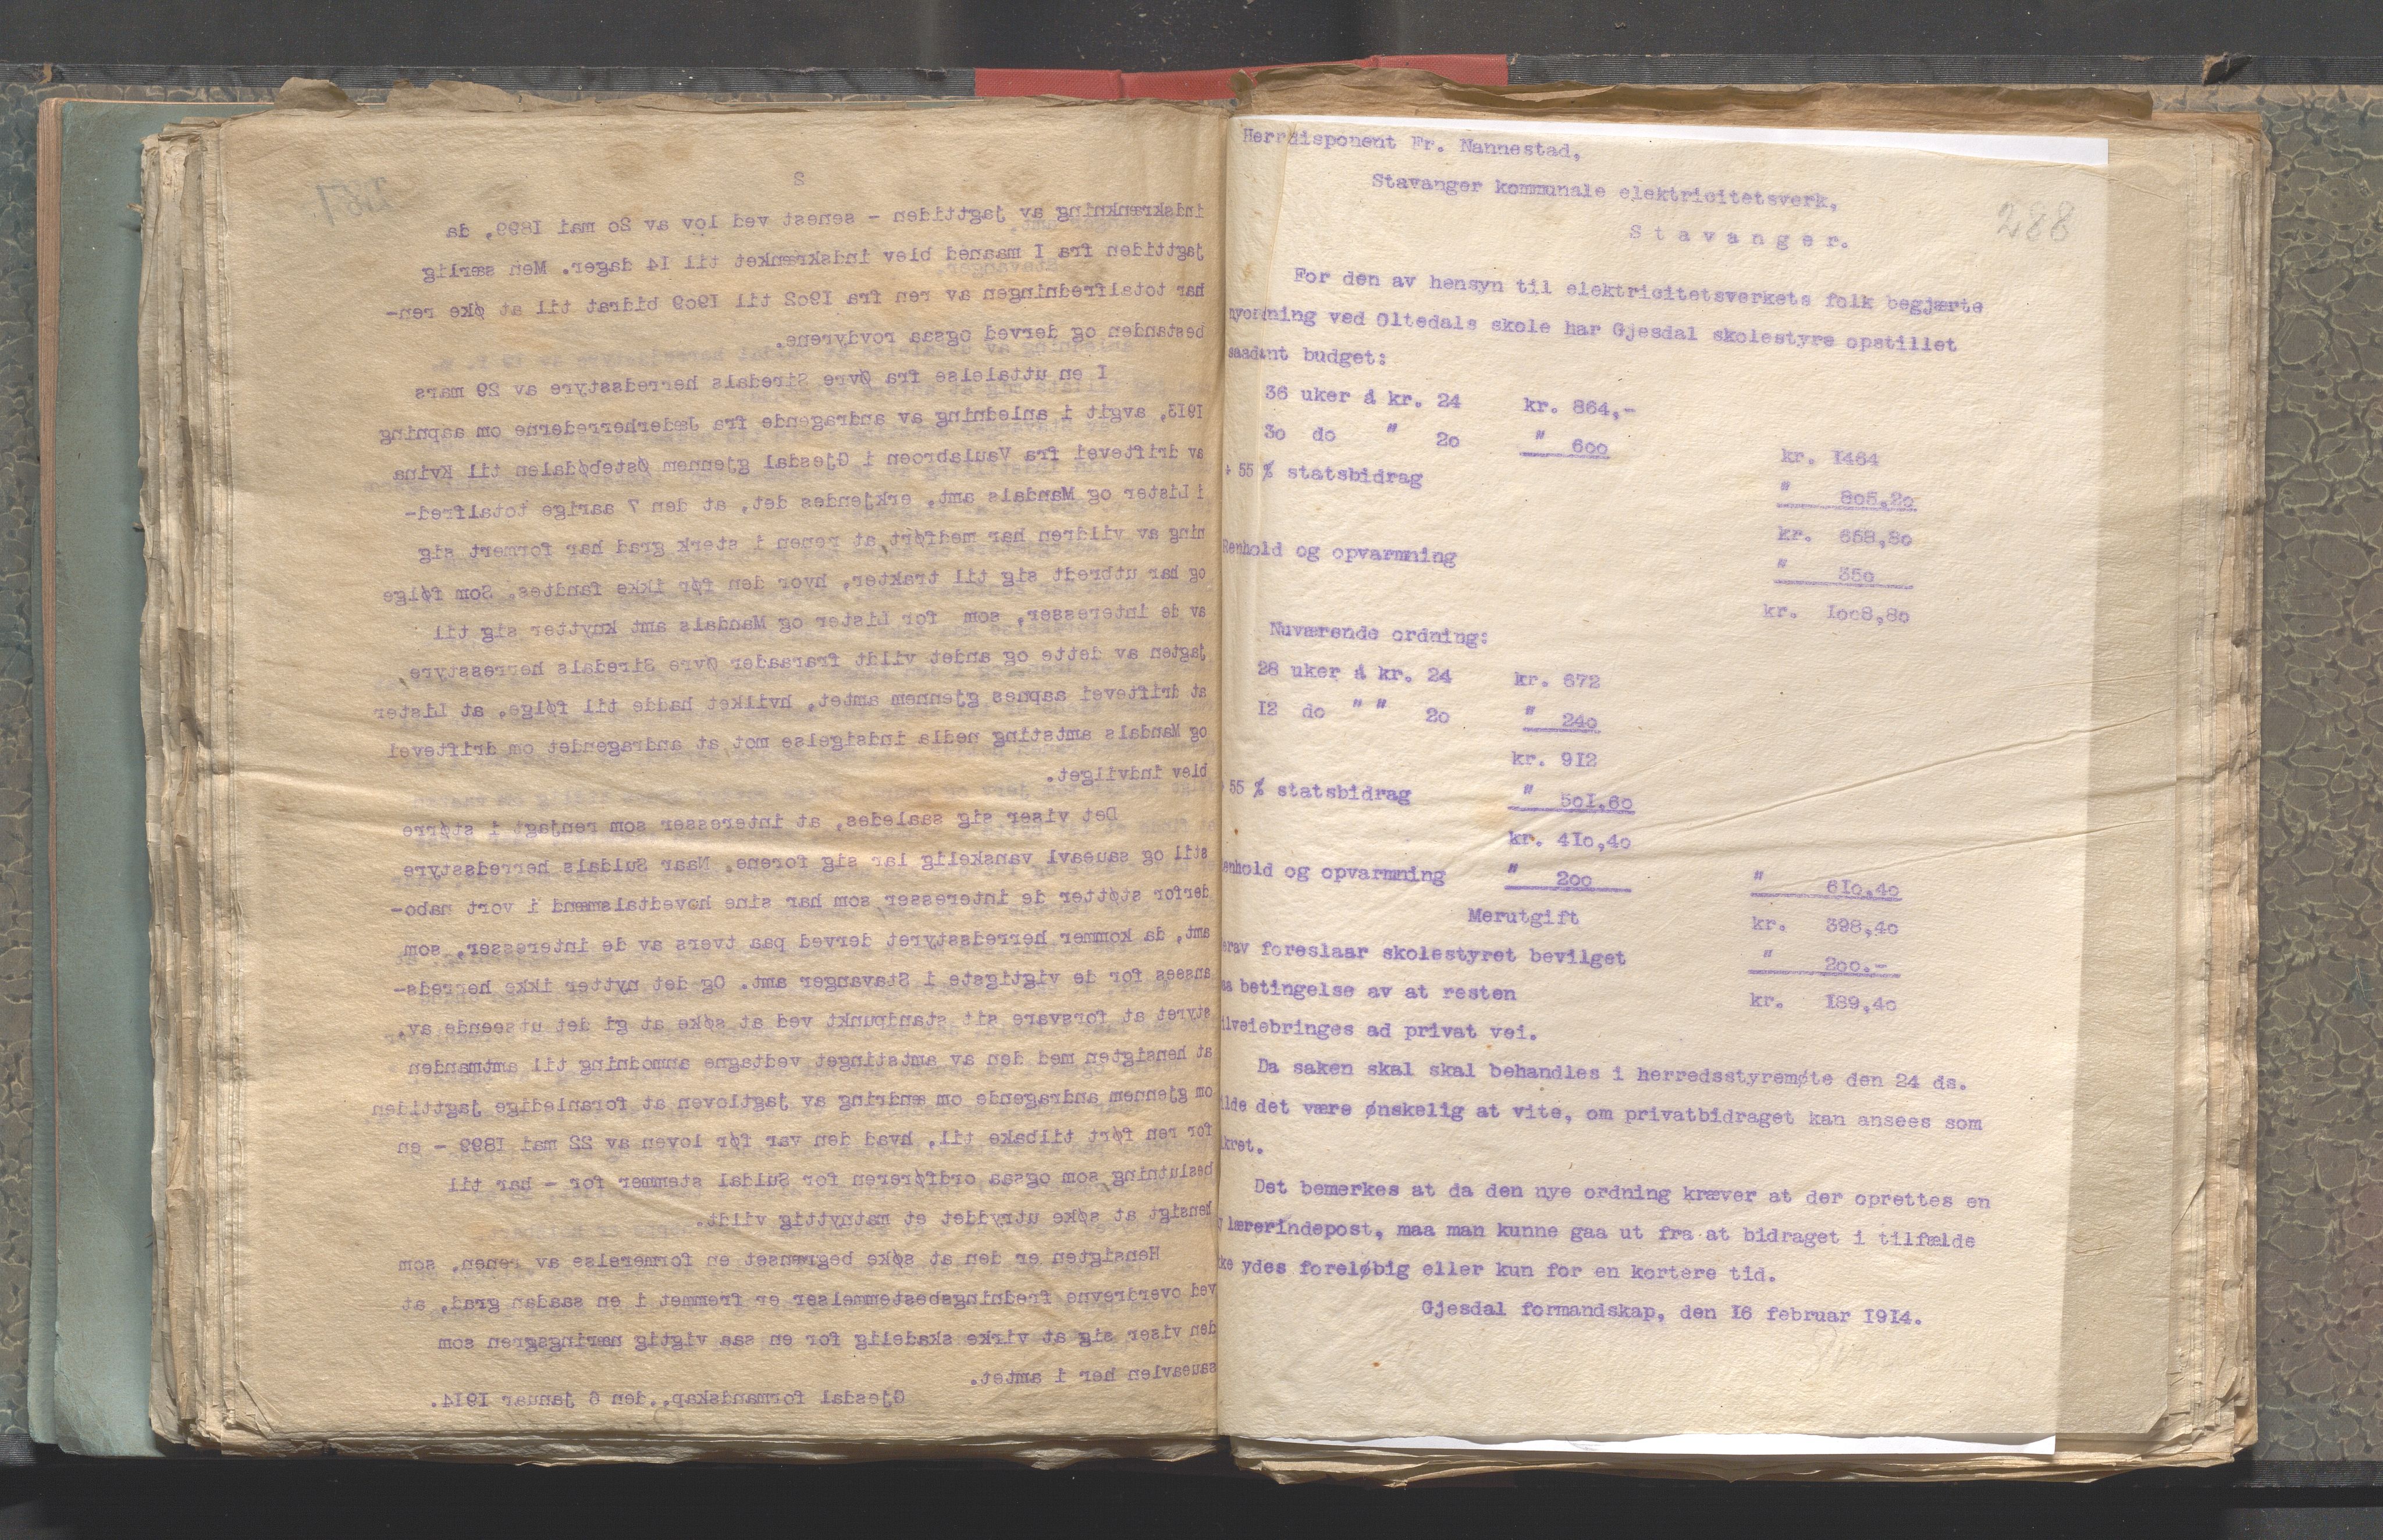 287
2
indskrænkning av jagttiden - senest ved lov av 20 mai 1899, da
jagttiden fra I maaned blev indskrænket til 14 dager. Men særlig
har totalfredningen av ren fra 1902 til 1909 bidrat til at øke ren-
bestanden og derved ogsaa rovdyrene.
I en uttalelse fra Øvre Siredals herredsstyre av 29 mars
1913, avgit i anledning av andragende fra Jæderherrederne om aapning
av driftevei fra Vaulabroen i Gjesdal gjennem Østebødalen til Kvina
i Lister og Mandals amt, erkjendes det, at den 7 aarige totalfred-
ning av vildren har medført, at renen i sterk grad har formert sig
og har utbredt sig til trakter, hvor den før ikke fandtes. Som følge
av de interesser, som for Lister og Mandals amt knytter sig til
jagten av dette og andet vildt fraraader Øvre Siredals herresstyre
at driftevei aapnes gjennem amtet, hvilket hadde til følge, at Lister
og Mandals amtsting nedla indsigelse mot, at andragendet om driftevei
blev indvilget.
Det viser sig saaledes, at interesser som renjagt i større
stil og saueavl vanskelig lar sig forene. Naar Suldals herredsstyre
derfor støtter de interesser, som har sine hovedtalsmænd i vort nabo-
amt, da kommer herredsstyret derved paa tvers av de interesser, som
ansees for de vigtigste i Stavanger amt. Og det nytter ikke herreds-
styret at forsvare sit standpunkt ved at søke at gi det utseende av,
at hensigten med den av amtstinget vedtagne anmodning til amtmanden
om gjennem andragende om ændring av jagtloven at foranledige jagttiden
for ren ført tilbake til, hvad den var før loven av 22 mai 1899 - en
beslutning, som ogsaa ordføreren for Suldal stemmer for - har til
hensigt at søke utryddet et matnyttig vildt.
Hensigten er den at søke begrænset en formerelse av renen, som
ved overdrevne fredningsbestemmelser er fremmet i en saadan grad, at
den viser sig at virke skadelig for en saa vigtig næringsgren som
saueavlen her i amtet.
Gjesdal formandskap, den 6 januar 1914.
Herrdisponent Fr. Nannestad,
Stavanger kommunale elektricitetsverk,
288
Stavanger.
For den av hensyn til elektricitetsverkets folk begjærte
nyordning ved Oltedals skole har Gjesdal skolestyre opstillet
saadant budget:
36 uker å kr. 24 kr. 864,-
30 do " 20 " 600 kr. 1464
+ 55 % statsbidrag " 805,20
kr. 658,80
Renhold og opvarmning " 350
kr. 1008,80
Nuværende ordning:
28 uker å kr. 24 kr. 672
12 do " " 20 " 240
kr. 912
55 % statsbidrag " 501,60
kr. 410,40
enhold og opvarmning " 200 " 610,40
Merutgift kr. 398,40
erav foreslaar skolestyret bevilget " 200.-
aa betingelse av at resten kr. 189,40
ilveiebringes ad privat vei.
Da saken skal skal behandles i herredsstyremøte den 24 ds.
ilde det være ønskelig at vite, om privatbidraget kan ansees som
ikret.
Det bemerkes at da den nye ordning kræver at der oprettes en
y lærerindepost, maa man kunne gaa ut fra at bidraget i tilfælde
ke ydes foreløbig eller kun for en kortere tid.
Gjesdal formandskap, den 16 februar 1914.